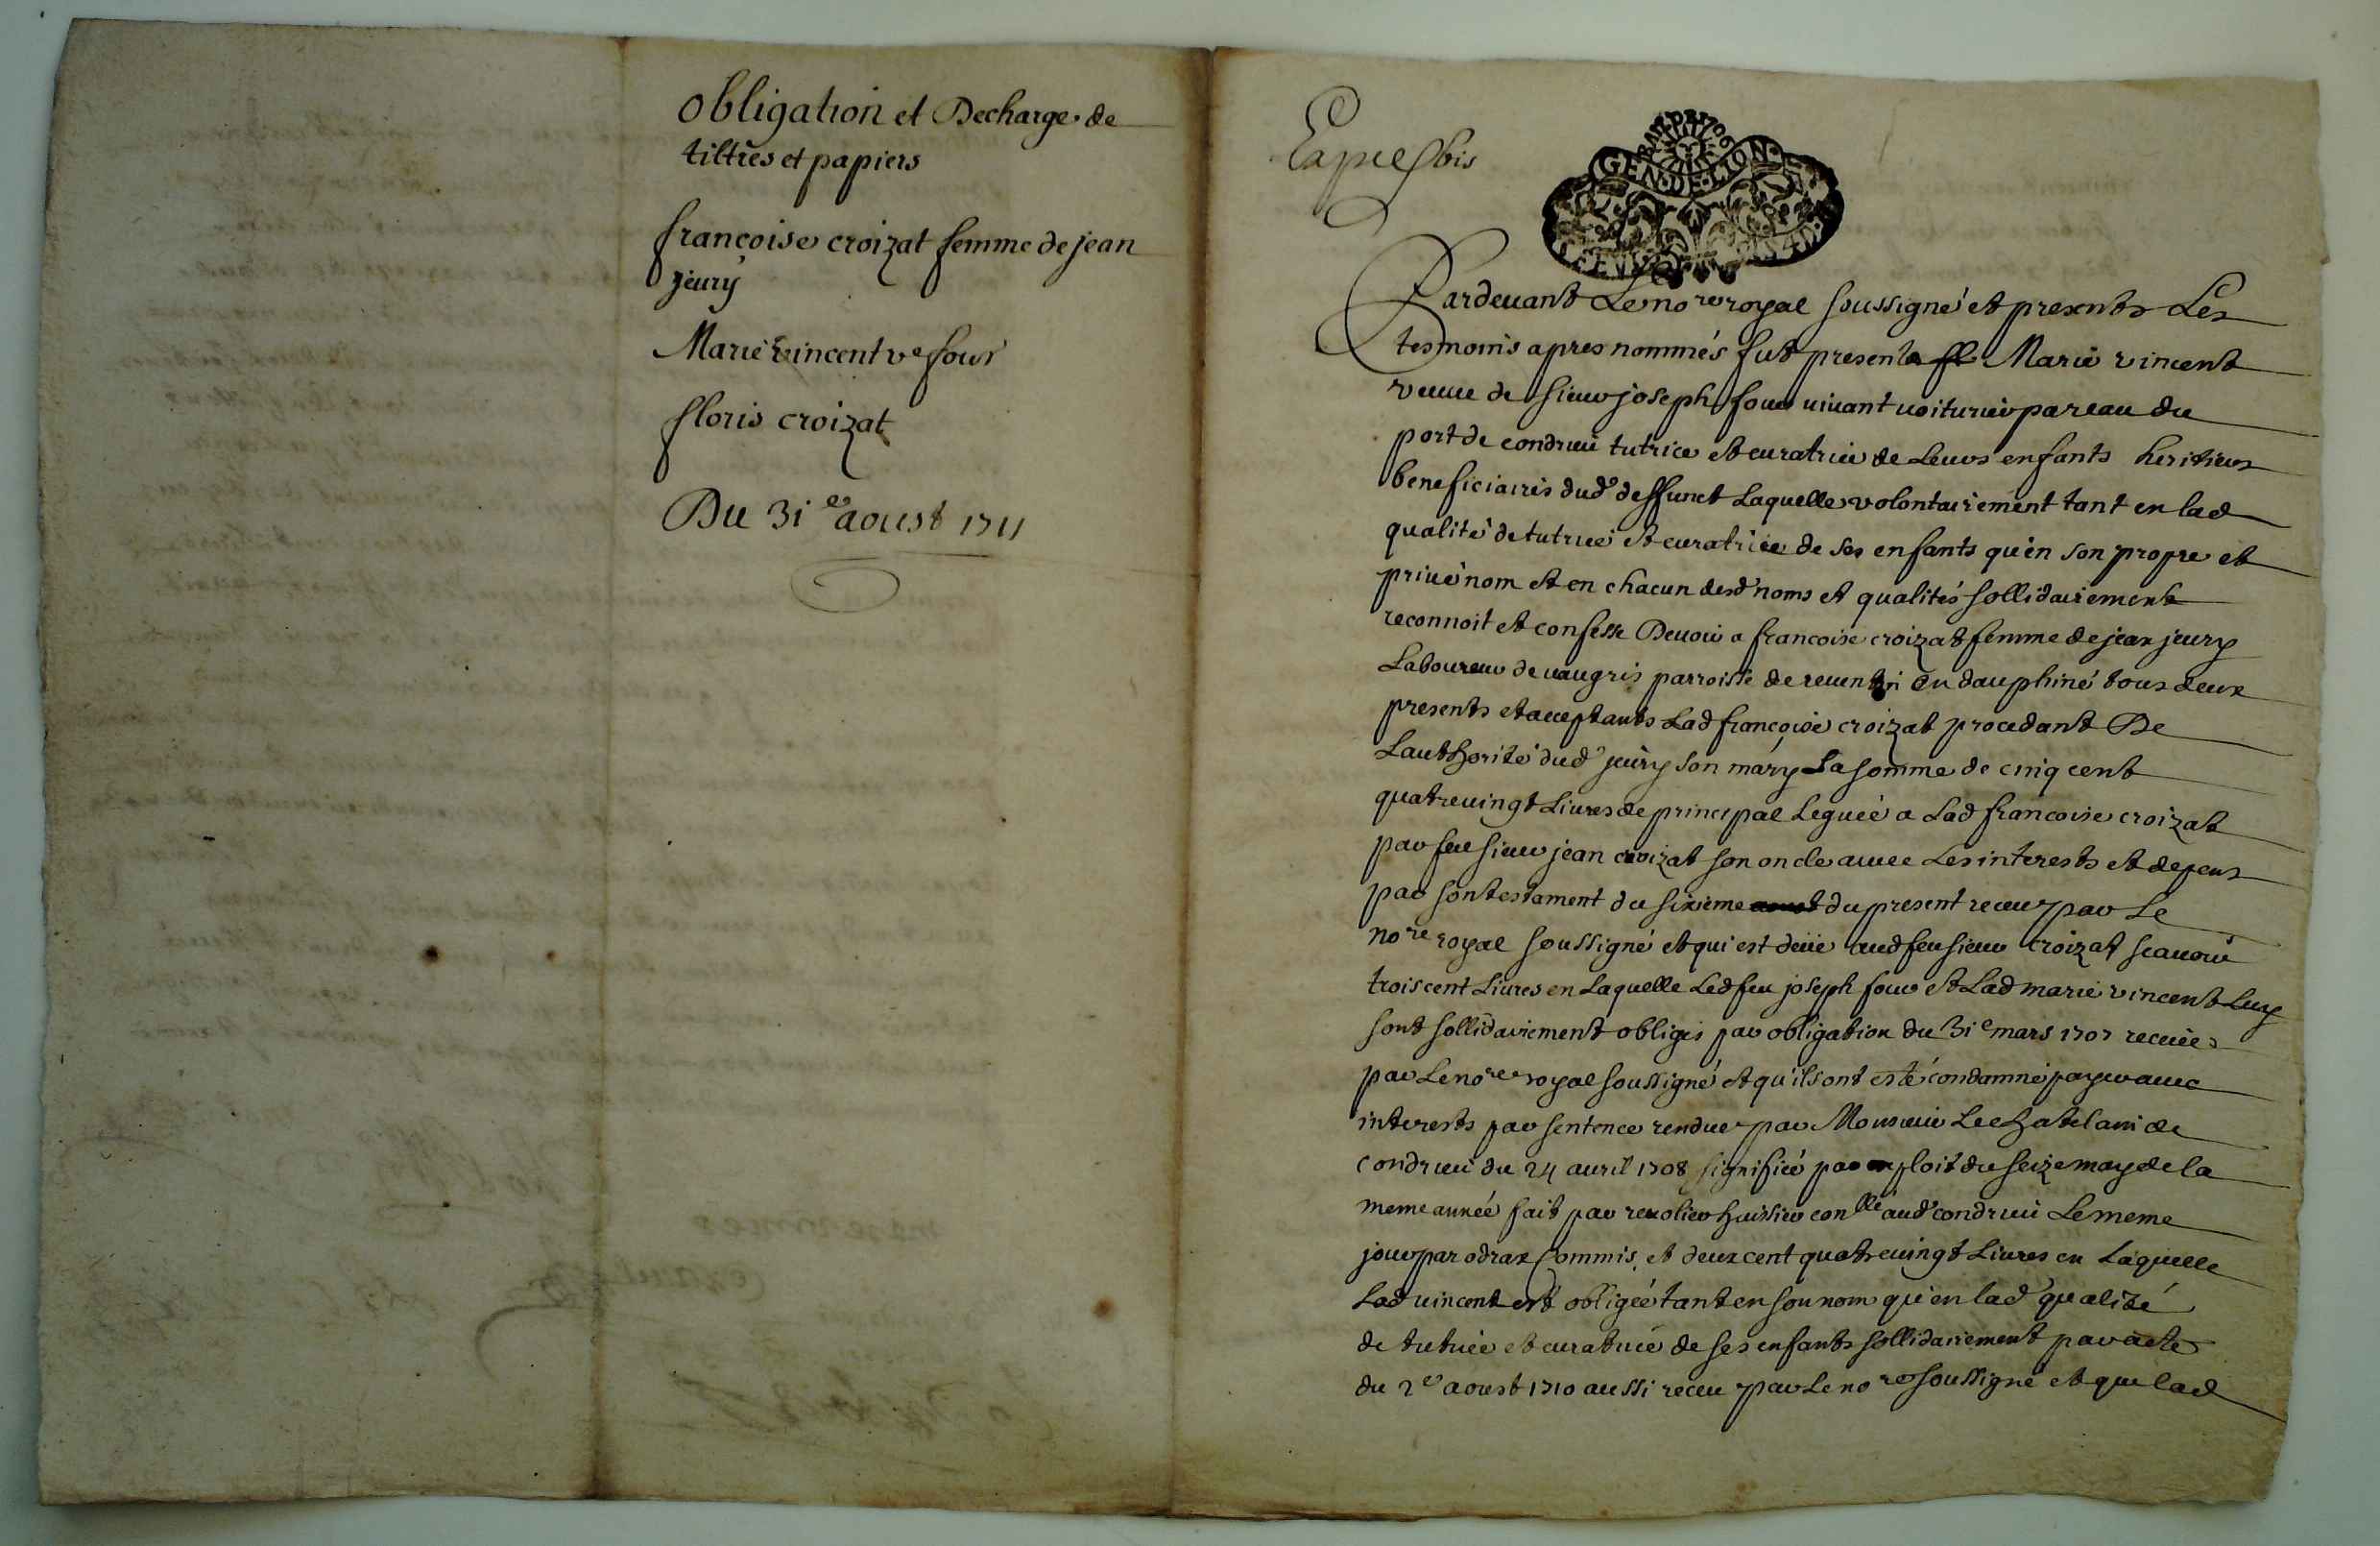 obligation et Decharge de
tiltres et papiers
françoise croizat femme de jean
jeury
Marie vincent ve four
floris croizat
Du 31e aoust 1711
GEN·DE·LION
Pardeuant Le nore royal soussigné et presents Les
tesmoins apres nommés fut presente Marie vincent
veuue de sieur joseph four viuant voiturier par eau du
port de condrieu tutrice et curatrice de Leurs enfants heritiers
beneficiaires dud deffunct Laquelle volontairement tant en lad
qualité de tutrice et curatrice de ses enfants qu'en son propre et
priué nom et en chacun desd noms et qualités sollidairement
reconnoit et confesse Deuoir a francoise croizat femme de jean jeury
Laboureur de vaugris parroisse de reuentin en dauphiné tous deux
presents et acceptants Lad françoise croizat procedant De
Lauthorité dud jeury son mary La somme de cinq cent
quatreuingt Liures de principal Leguée a Lad francoise croizat
par feu sieur jean croizat son oncle auec Les interests et depens
par son testament du sixieme du present receu par Le
nore royal soussigné et qui est deüe aud feu sieur croizat scauoir
trois cent Liures en Laquelle Led feu joseph four et Lad marie vincent Luy
sont sollidairement obligés par obligation du 31e mars 1707 receüe
par Le nore royal soussigné et qu'ils ont esté condamné payer auec
interests par sentence rendue par Monsieur Le chatelain de
condrieu du 24 auril 1708 signifiée par exploit du seize may de la
meme année fait par reuolier huissier conllé aud condrieu Le meme
jour par odrax Commis, et deux cent quatreuingt Liures en Laquelle
Lad vincent est obligée tant en son nom qu'en lad qualité
de tutrice et curatrice de ses enfants sollidairement par acte
du 2e aoust 1710 aussi receu par Le nore soussigné et que lad